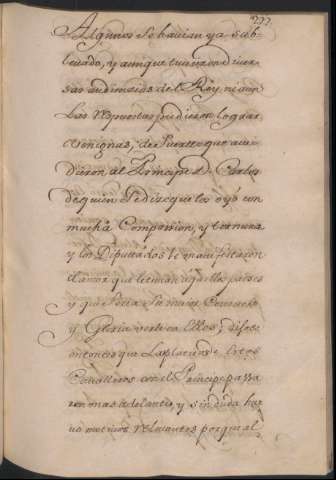 Algunos se havian ya sub-
levado, y aunque tuvieron diver-
sas audiencias del Rey, ni aun
las respuestas pudieron lograr
venignas, de suerte que acu-
dieron al Principe D. Carlos
de quien se dize que los oyò con
mucha Compassion, y ternura
y los Diputados le manifestaron
el amor que le tenian aquellos paises
y que seria su maior Consuelo
y Gloria verle en Ellos; dixose
entonces que las platicas de estos
Cavalleros con el Principe passa
ron mas adelante, y sin duda hu
vo motivos relevantes porque al